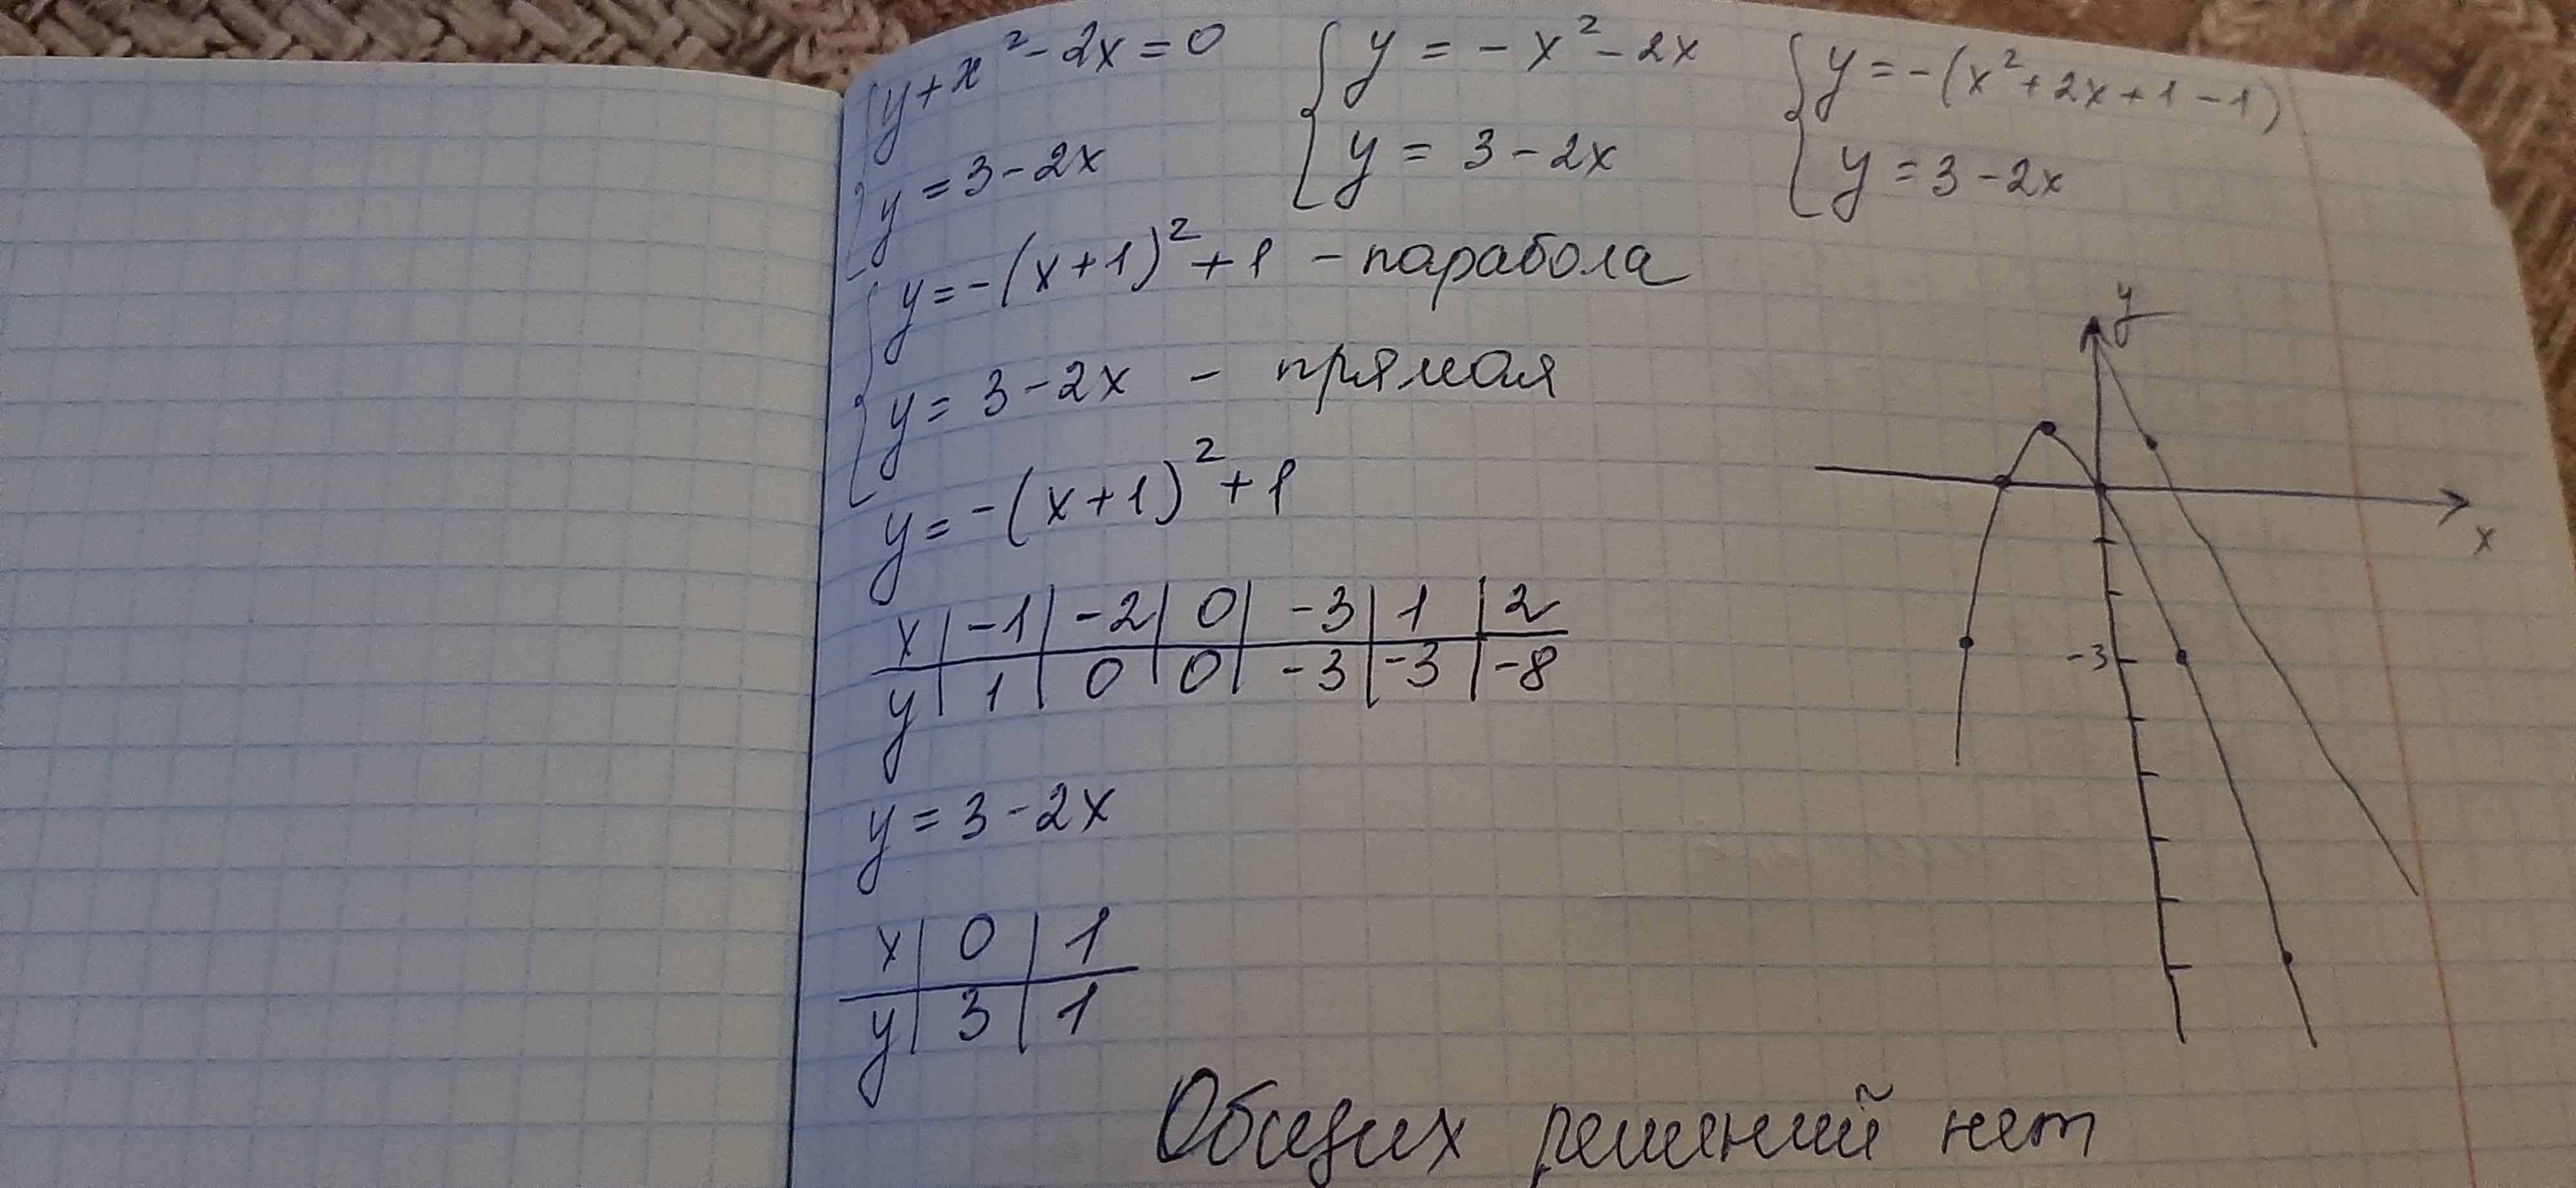 {y+x²-2x=0 {y=-x²-2x {y=-(x²+2x+1-1)
{y=3-2x {y=3-2x {y=3-2x
{y=-(x+1)²+1 - парабола
{y=3-2x - прямая
y=-(x+1)²+1
x | -1 | -2 | 0 | -3 | 1 | 2
y | 1 | 0 | 0 | -3 | -3 | -8
y=3-2x
x | 0 | 1
y | 3 | 1
y
x
-3
Общих решений нет